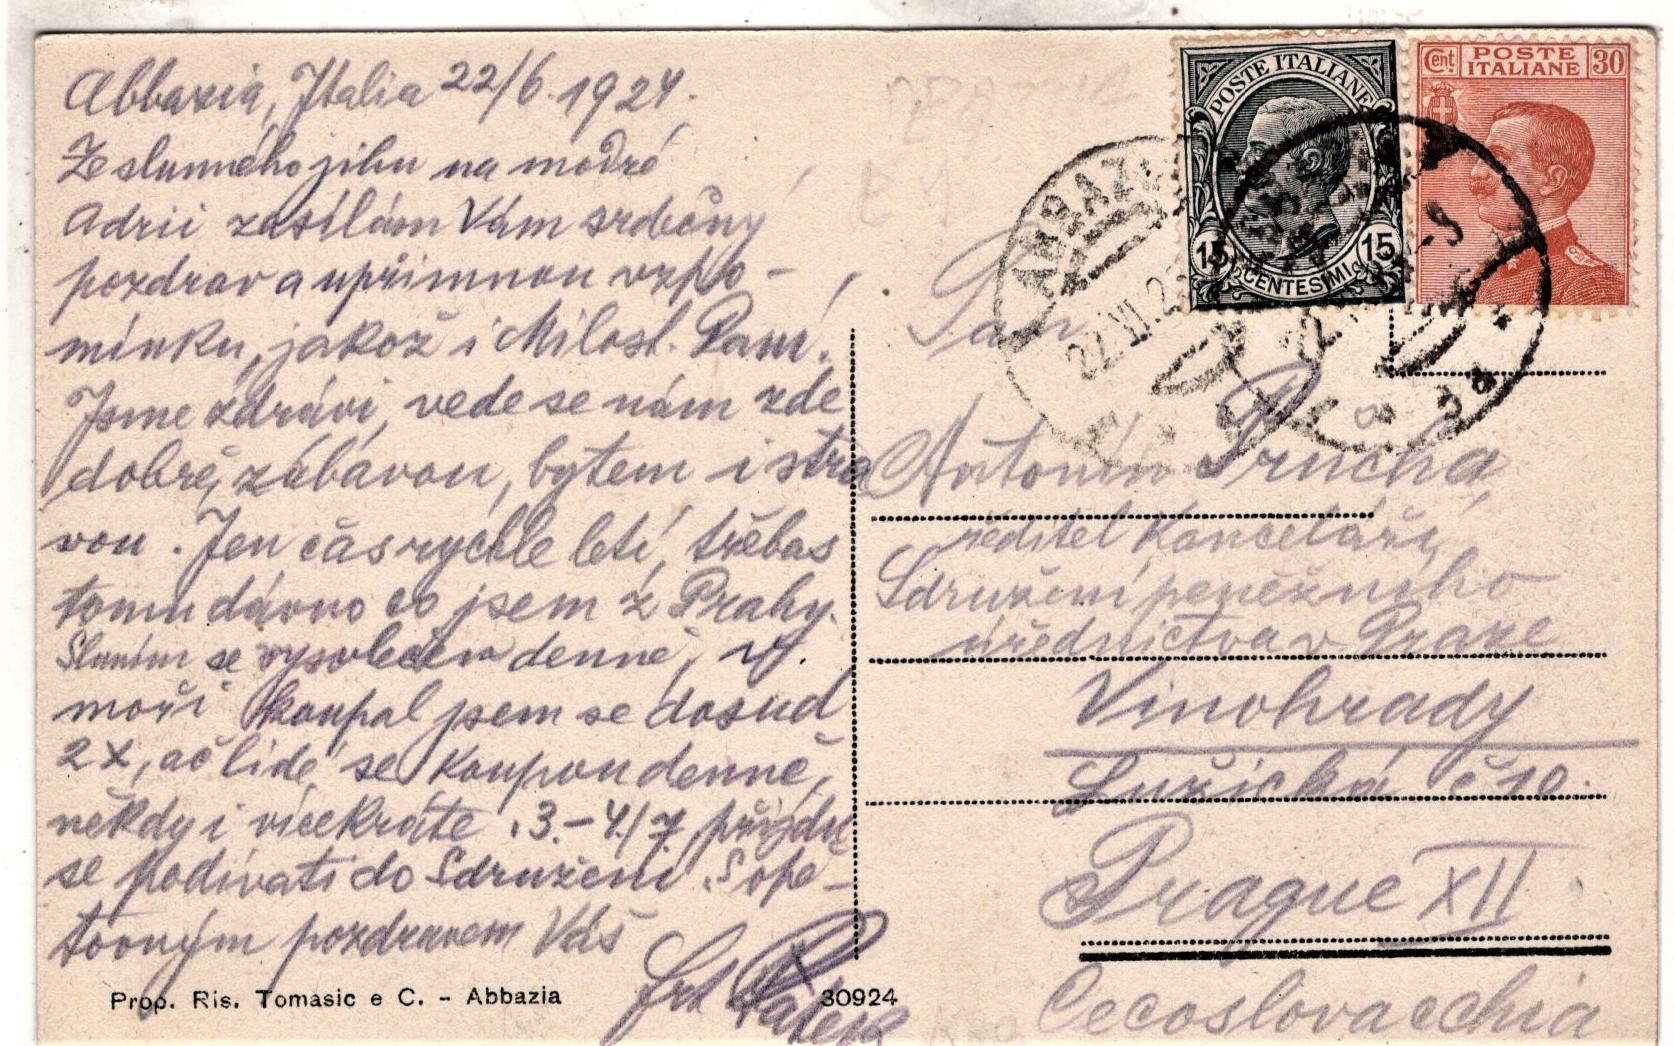 Abbazia, Italia 22/6. 1924.
Ze slunného jihu na modré
Adrii zasílám Vám srdečný
pozdrav a upřímnou vzpo-
mínku, jakož i Milost. Paní.
Jsme zdrávi, vede se nám zde
dobře, zábavou, bytem i stra
vou. Jen čas rychle letí, třebas
tomu dávno co jsem z Prahy.
Sluním se denně, v
moři koupal jsem se dosud
2x, ač lidé se koupou denně,
někdy i vícekráte. 3.-4./7. přijdu
se podívati do Sdružení. S opě-
tovným pozdravem Váš
Prop. Ris. Tomasic e C. - Abbazia
30924
POSTE ITALIANE
15 CENTESIMI 15
Cent POSTE ITALIANE 30
ABBAZIA
22.VI.2
Pan
Antonín Průcha,
ředitel Kanceláří
Sdružení peněžního
úřednictva v Praze
Vinohrady
Lužická č 10.
Prague XII
Cecoslovacchia